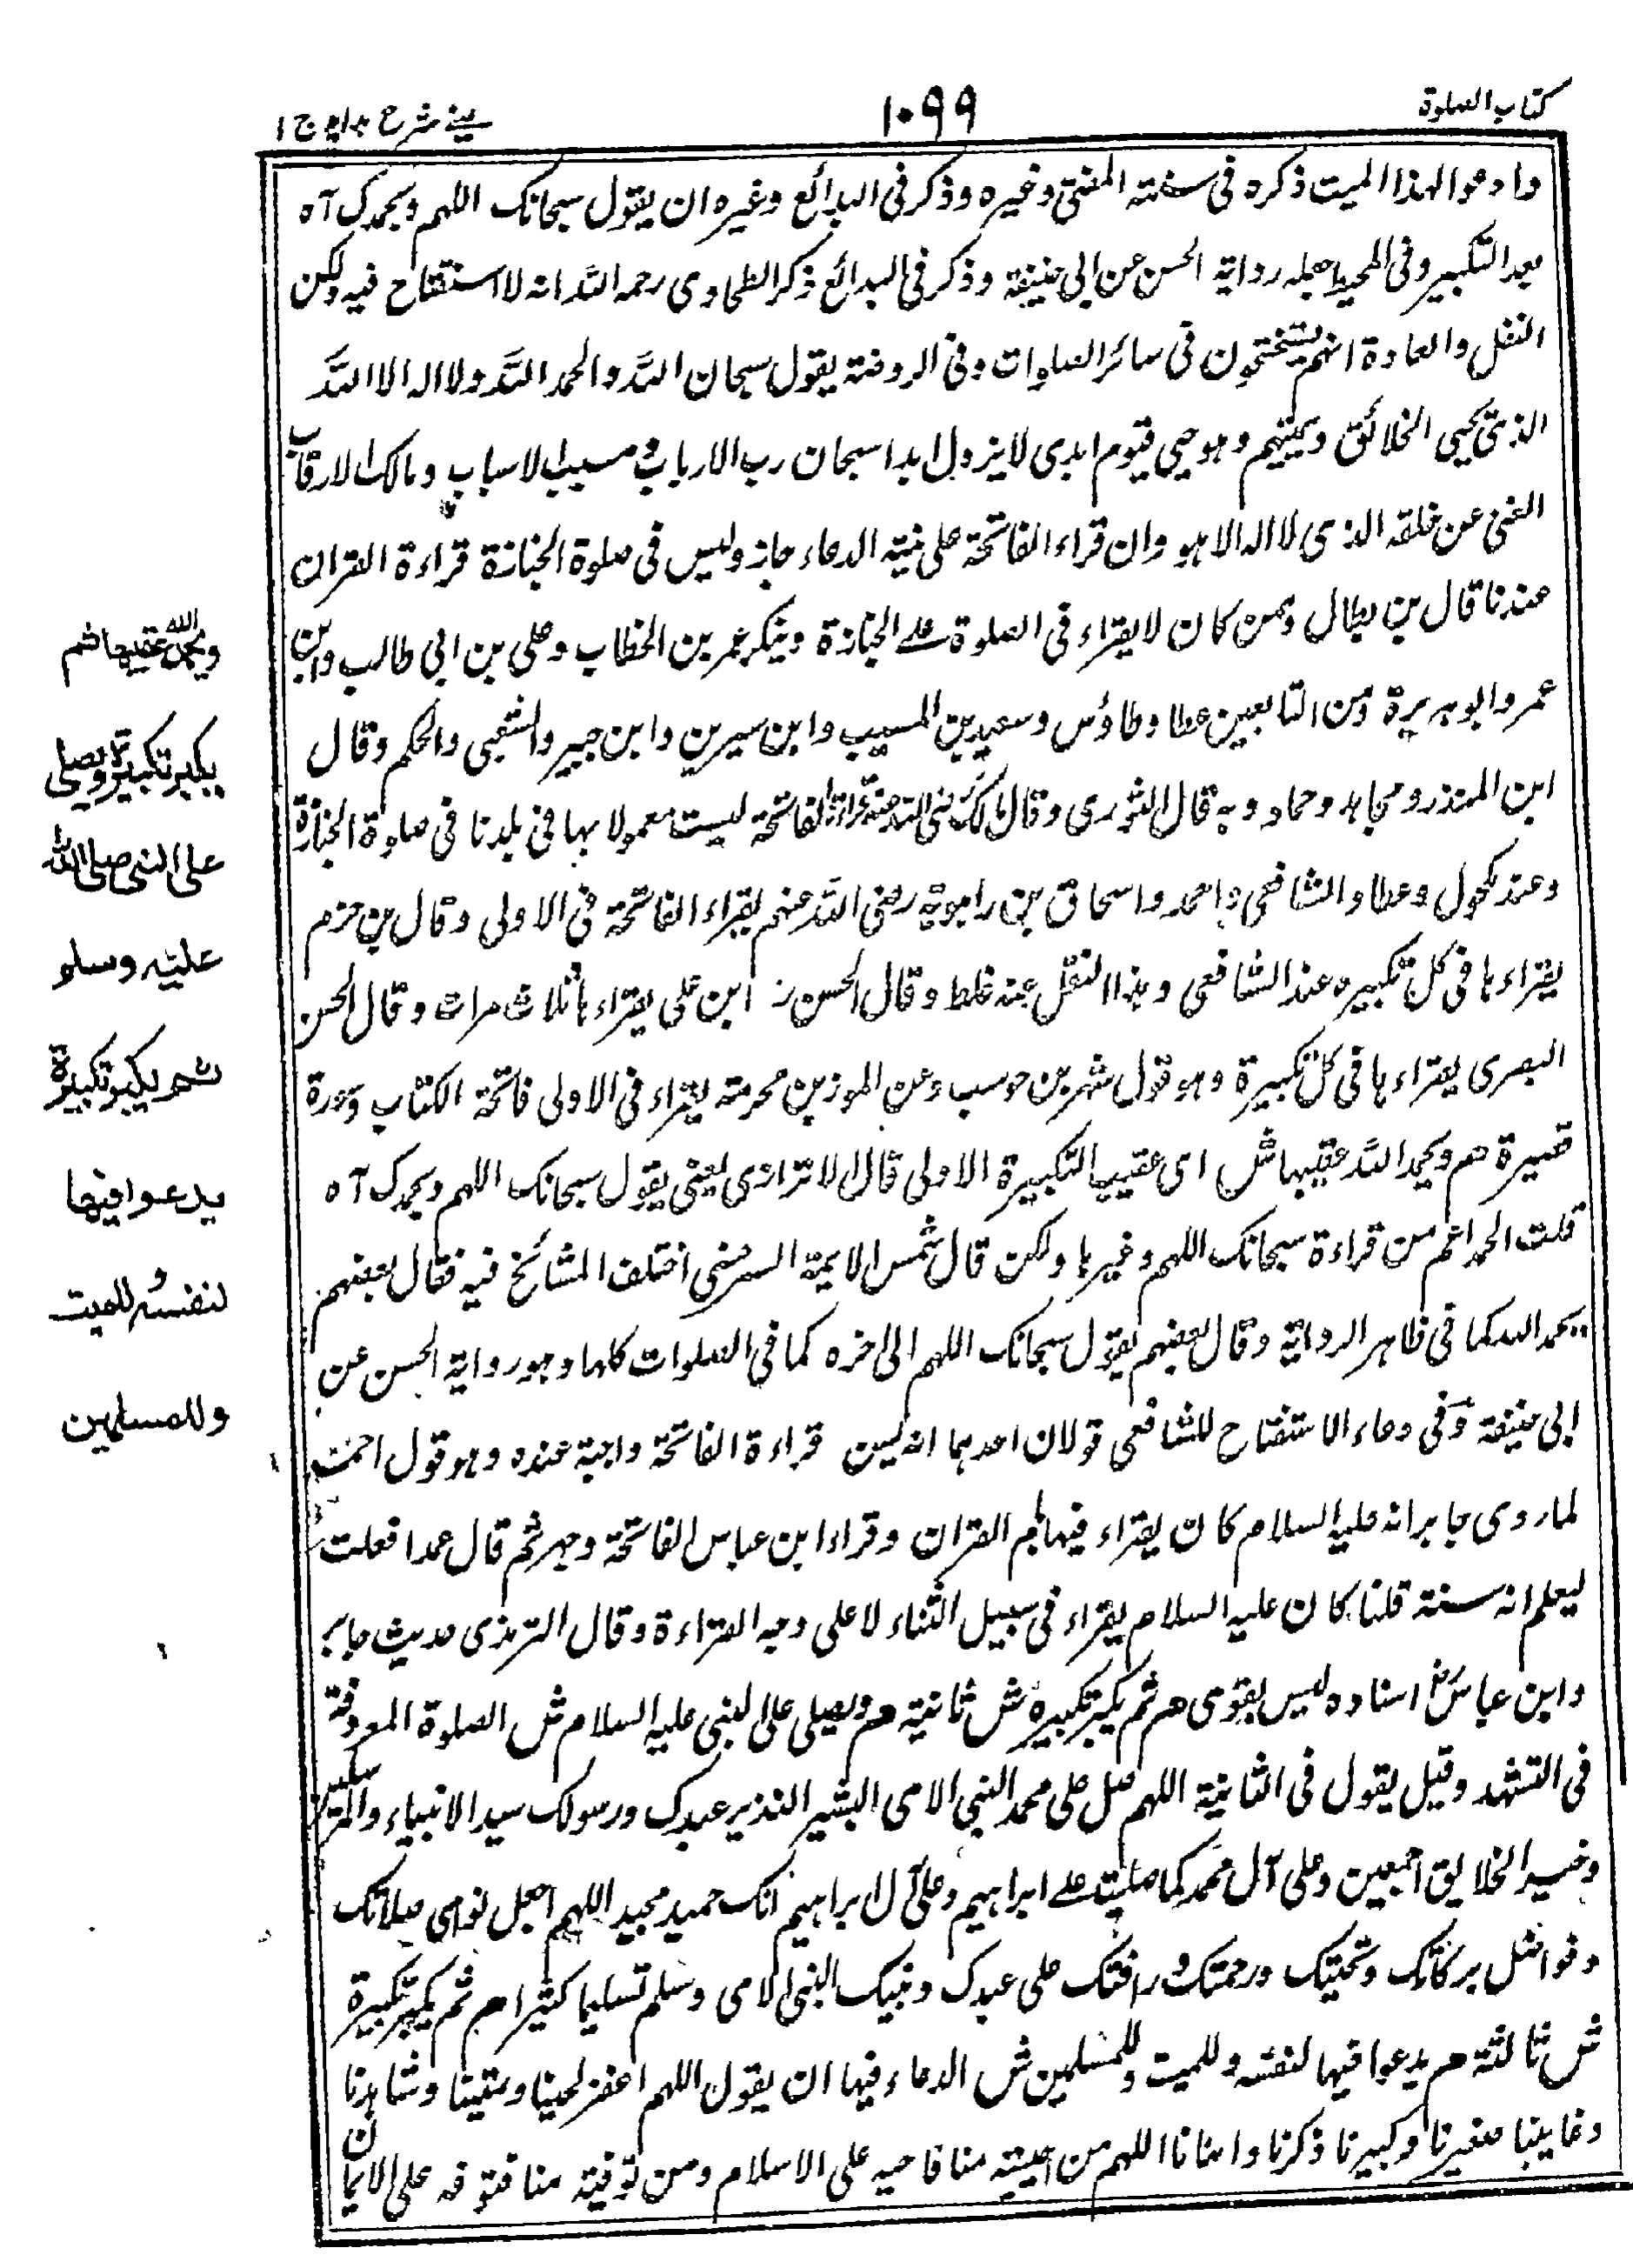 كتاب الصلوة
١٠٩٩
عينے شرح ہدايہ ج ١
وادعوا لهذا الميت ذكره فى سنة المفتى وغيره وذكر فى البدائع وغيره ان يقول سبحانك اللهم وبحمدك آه
بعد التكبير وفى المحيط جعله رواية الحسن عن ابى حنيفة وذكر فى البدائع ذكر الطحاوى رحمه الله انه لا استفتاح فيه ولكن
النقل والعادة انهم يستفتحون فى سائر الصلوات وفى الروضة يقول سبحان الله والحمد الله ولا اله الا الله
الذى يحيى الخلائق ويميتهم وهو حى قيوم ابدى لا يزول ابدا سبحان رب الارباب مسبب الاسباب ومالك الارقاب
الغنى عن خلقه الذى لا اله الا هو وان قراء الفاتحة على نية الدعاء جاز وليس فى صلوة الجنازة قراءة القران
عندنا قال بن بطال وممن كان لا يقراء فى الصلوة على الجنازة وينكر عمر بن الخطاب وعلى بن ابى طالب وابن
عمر وابو هريرة ومن التابعين عطا وطاؤس وسعيد بن المسيب وابن سيرين وابن جبير والشعبى والحكم وقال
ابن المنذر ومجاهد وحماد وبه قال الثورى وقال مالك رضى الله عنه قراءة الفاتحة ليست معمولا بها فى بلدنا فى صلوة الجنازة
وعند مكحول وعطا والشافعى واحمد واسحاق بن راهويه رضى الله عنهم يقراء الفاتحة فى الاولى وقال بن حزم
يقراءها فى كل تكبيره عند الشافعى وهذا النقل عنه غلط وقال الحسن ابن على يقراءها ثلاث مرات وقال الحسن
البصرى يقراءها فى كل تكبيرة وهو قول شهر بن حوسب وعن الموزبن مخرمة يقراء فى الاولى فاتحة الكتاب وسورة
قصيرة هم ويحمد الله عقيبها ش اى عقيب التكبيرة الاولى قال الاترازى يعنى يقول سبحانك اللهم وبحمدك آه
قلت الحمد اعم من قراءة سبحانك اللهم وغيرها ولكن قال شمس الايمة السرخسى اختلف المشائخ فيه فقال بعضهم
يحمد الله كما فى ظاهر الرواية وقال بعضهم يقول سبحانك اللهم الى اخره كما فى الصلوات كلها وهو رواية الحسن عن
ابى حنيفة وفى دعاء الاستفتاح للشافعى قولان احدهما انه ليس قراءة الفاتحة واجبة عنده وهو قول احمد
لما روى جابر انه عليه السلام كان يقراء فيها بام القران وقراء ابن عباس الفاتحة وجهر ثم قال عمدا فعلت
ليعلم انه سنة قلنا كان عليه السلام يقراء فى سبيل الثناء لا على وجه القراءة وقال الترمذى حديث جابر
وابن عباس اسناده ليس بقوى هم ثم يكبر تكبيرة ش ثانية هم ويصلى على النبى عليه السلام ش الصلوة المعروفة
فى التشهد وقيل يقول فى الثانية اللهم صل على محمد النبى الامى البشير النذير عبدك ورسولك سيد الانبياء والمرسلين
وخير الخلايق اجمعين وعلى آل محمد كما صليت على ابراهيم وعلى آل ابراهيم انك حميد مجيد اللهم اجعل نوامى صلاتك
وفواضل بركاتك وتحيتك ورحمتك ورافتك على عبدك ونبيك النبى الامى وسلم تسليما كثيرا هم ثم يكبر تكبيرة
ش ثالثة هم يدعوا فيها لنفسه وللميت وللمسلمين ش الدعاء فيها ان يقول اللهم اغفر لحينا وميتنا وشاهدنا
وغايبنا صغيرنا وكبيرنا ذكرنا وانثانا اللهم من احييته منا فاحيه على الاسلام ومن توفيته منا فتوفه على الايمان
ويحمد الله عقيبها ثم
يكبر تكبيرة ويصلى
على النبى صلى الله
عليه وسلم
ثم يكبر تكبيرة
يدعوا فيها
لنفسه وللميت
وللمسلمين